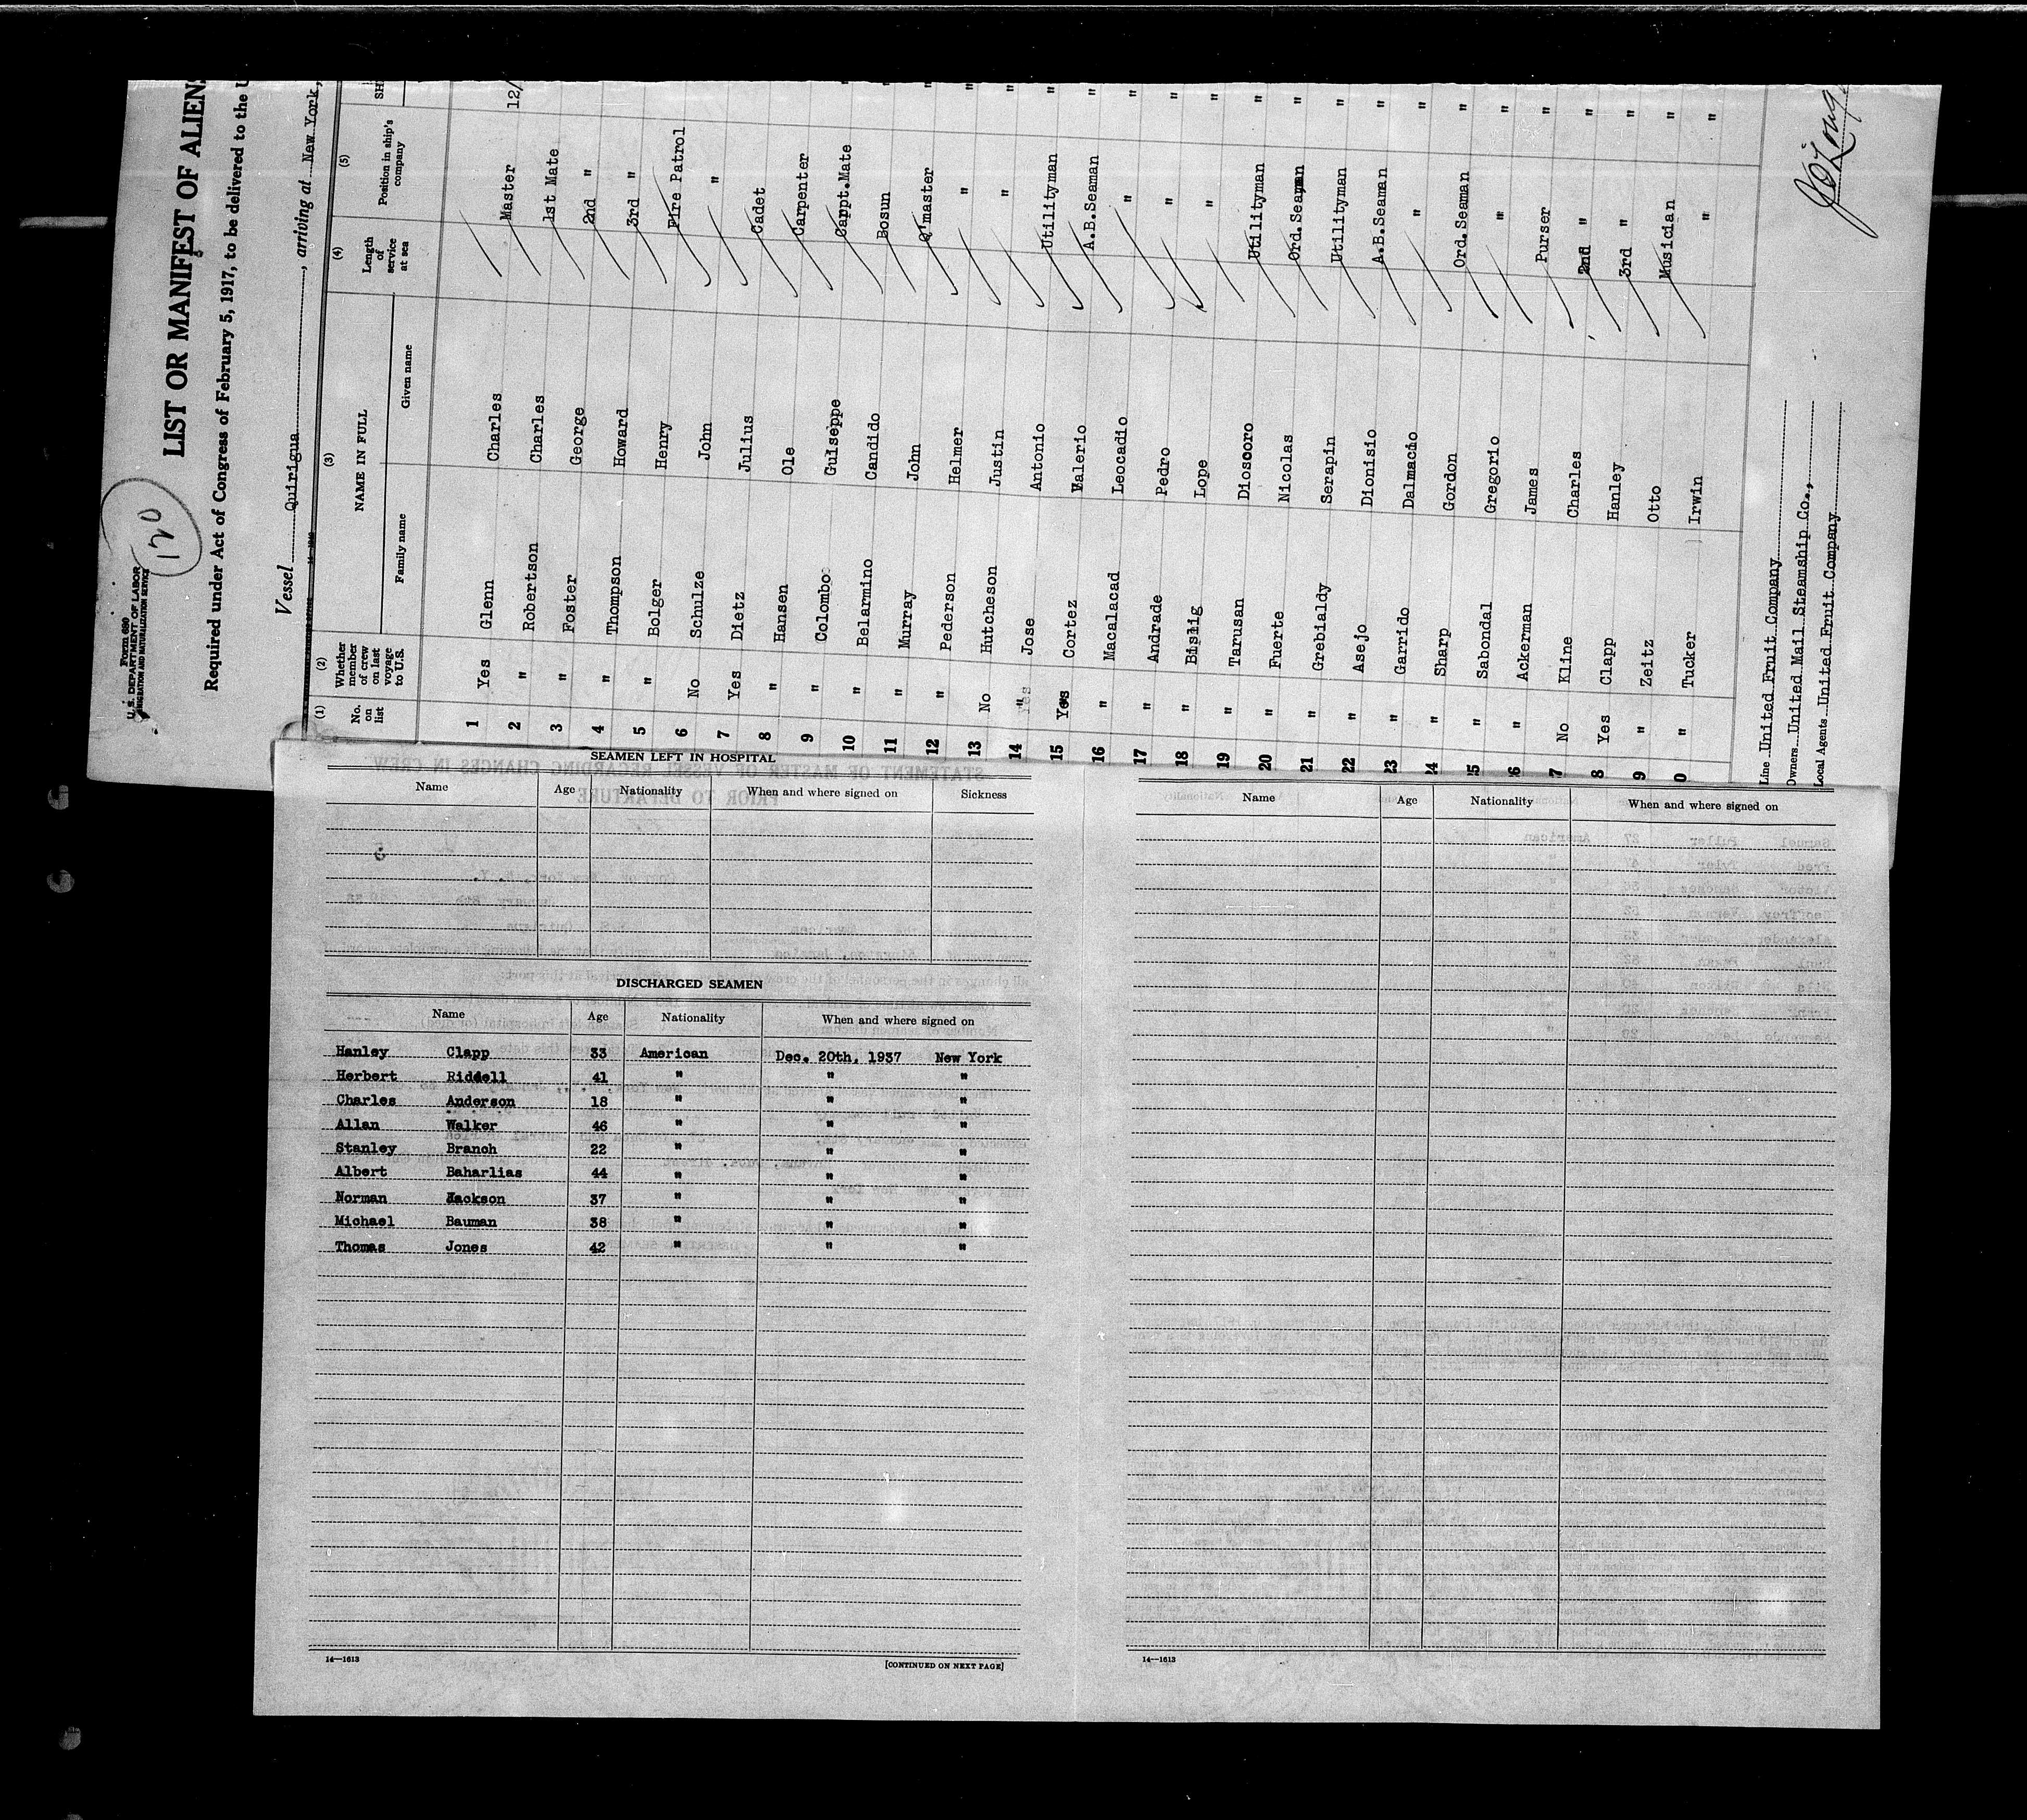 Form 680
U. S. DEPARTMENT OF LABOR
IMMIGRATION AND NATURALIZATION SERVICE
120
LIST OR MANIFEST OF ALIENS
Required under Act of Congress of February 5, 1917, to be delivered to the U
Vessel Quirigua, arriving at New York,
(1) (2) (3) (4) (5)
No. on list Whether member of crew on last voyage to U.S. NAME IN FULL Length of service at sea Position in ship's company SH
Family name Given name
1 Yes Glenn Charles Master 12/
2 " Robertson Charles 1st Mate
3 " Foster George 2nd "
4 " Thompson Howard 3rd "
5 " Bolger Henry Fire Patrol
6 No Schulze John "
7 Yes Dietz Julius Cadet
8 " Hansen Ole Carpenter
9 " Colombo Guiseppe Carpt.Mate "
10 " Belarmino Candido Bosun "
11 " Murray John Q'master "
12 " Pederson Helmer " "
13 No Hutcheson Justin " "
14 Yes Jose Antonio Utilityman "
15 Yes Cortez Valerio A.B.Seaman "
16 " Macalacad Leocadio " "
17 " Andrade Pedro " "
18 " Bislig Lope " "
19 " Tarusan Dioscoro Utilityman "
20 " Fuerte Nicolas Ord.Seaman "
21 " Grebialdy Serapin Utilityman "
22 " Asejo Dionisio A.B.Seaman "
23 " Garrido Dalmacio " "
24 " Sharp Gordon Ord.Seaman "
25 " Sabondal Gregorio " "
26 " Ackerman James Purser "
7 No Kline Charles 2nd " "
8 Yes Clapp Hanley 3rd " "
9 " Zeitz Otto Musician "
0 " Tucker Irwin " "
Line United Fruit Company
Owners United Mail Steamship Co.,
Local Agents United Fruit Company
SEAMEN LEFT IN HOSPITAL
Name Age Nationality When and where signed on Sickness
DISCHARGED SEAMEN
Name Age Nationality When and where signed on
Hanley Clapp 33 American Dec. 20th, 1937 New York
Herbert Riddell 41 " " "
Charles Anderson 18 " " "
Allan Walker 46 " " "
Stanley Branch 22 " " "
Albert Baharlias 44 " " "
Norman Jackson 37 " " "
Michael Bauman 38 " " "
Thomas Jones 42 " " "
14—1613
[CONTINUED ON NEXT PAGE]
Name Age Nationality When and where signed on
14—1613